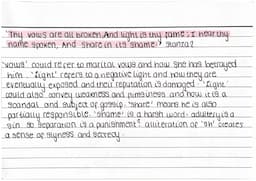 'Thy vows are all broken, And light is thy fame; I hear thy
name spoken, And share in its shame', stanza?
'vows' could refer to marital vows and how she has betrayed
him. 'Light' refers to a negative light and how they are
eventually exposed and their reputation is damaged. 'Light'
could also convey weakness and flimsiness and how it is a
scandal and subject of gossip. 'share' means he is also
partially responsible. 'shame' is a harsh word- adultery is a
sin so separation is a punishment? alliteration of 'sh' creates
a sense of slyness and secrecy.